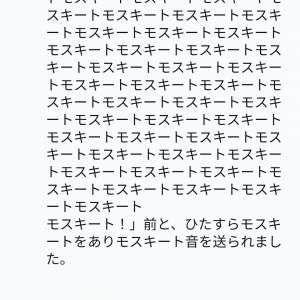 スキートモスキートモスキートモスキ
ートモスキートモスキートモスキート
モスキートモスキートモスキートモス
キートモスキートモスキートモスキー
トモスキートモスキートモスキートモ
スキートモスキートモスキートモスキ
ートモスキートモスキートモスキート
モスキートモスキートモスキートモス
キートモスキートモスキートモスキー
トモスキートモスキートモスキートモ
スキートモスキートモスキートモスキ
ートモスキート
モスキート！」前と、ひたすらモスキ
ートをありモスキート音を送られまし
た。